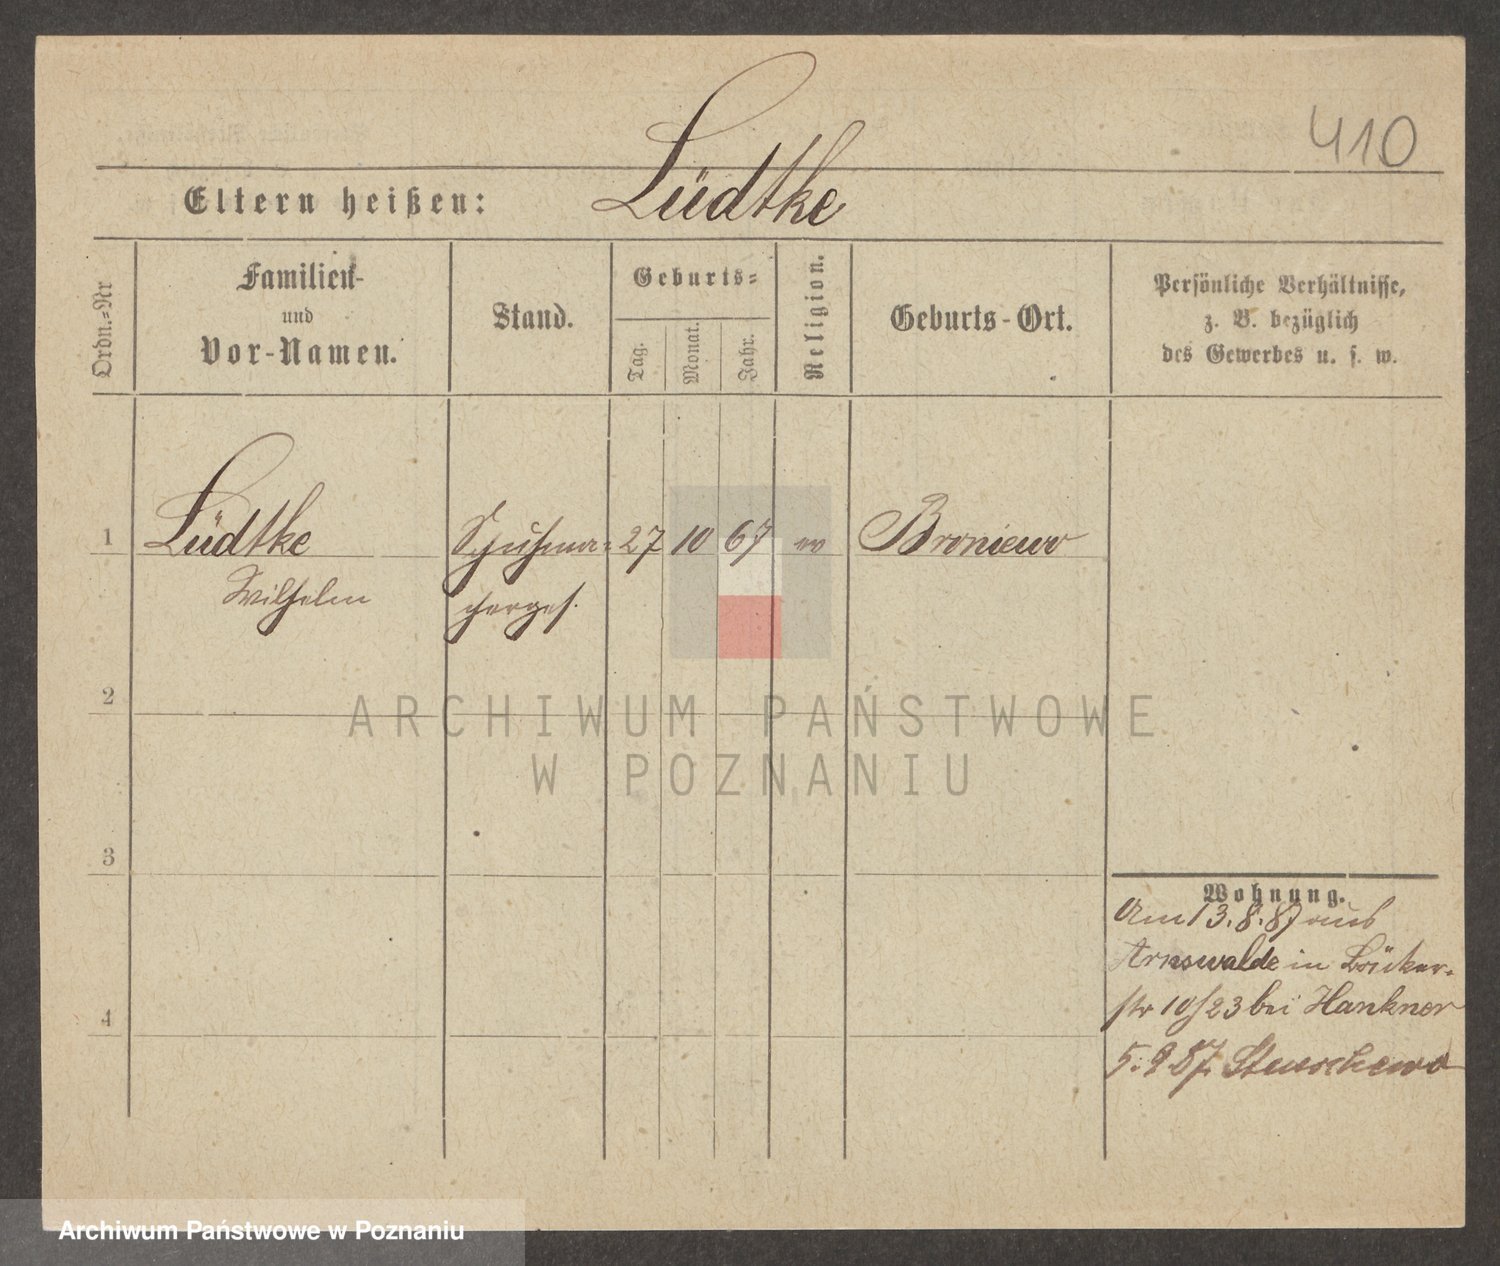 410
Lüdtke
Eltern heißen:
Ordn.=Nr
Familien-
und
Vor-Namen.
Stand.
Geburts=
Tag.
Monat.
Jahr.
Religion.
Geburts-Ort.
Persönliche Verhältnisse,
z. B. bezüglich
des Gewerbes u. s. w.
1 Lüdtke Schuhma= 27 10 67 ev Broniewo
Wilhelm cherges.
2
ARCHIWUM PAŃSTWOWE
W POZNANIU
3
Wohnung.
Am 13.8.87 aus
Arnswalde in Bäcker-
str 10/23 bei Hankner
4
5.9.87.
Archiwum Państwowe w Poznaniu